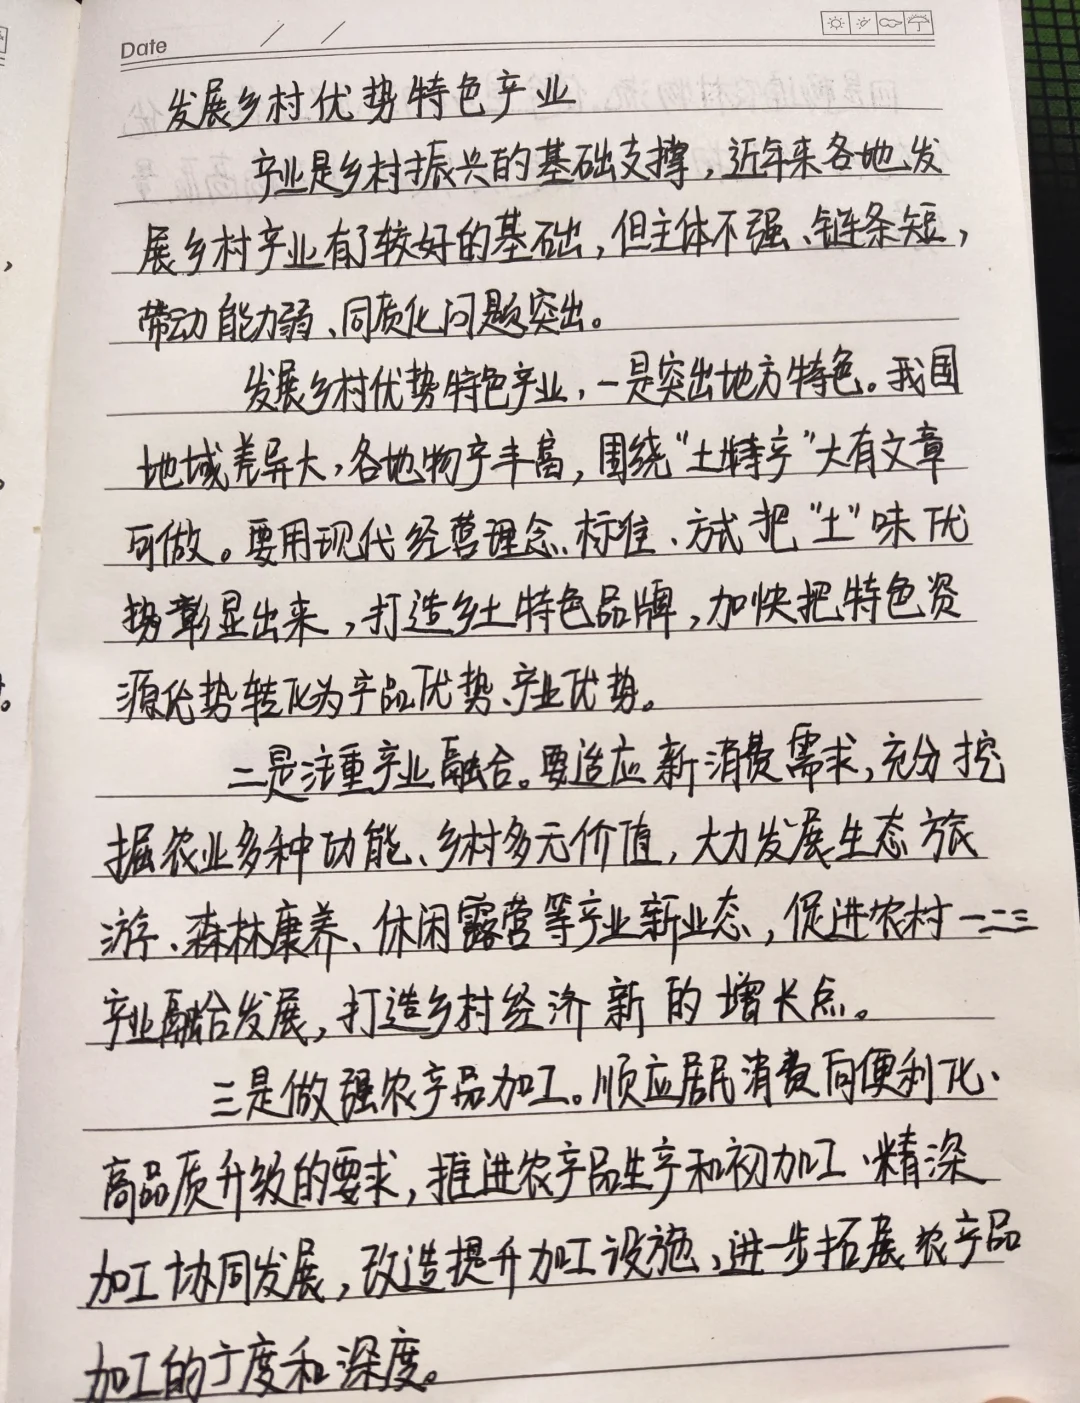 Date / /
发展乡村优势特色产业
产业是乡村振兴的基础支撑，近年来各地发
展乡村产业有了较好的基础，但主体不强、链条短，
带动能力弱、同质化问题突出。
发展乡村优势特色产业，一是突出地方特色。我国
地域差异大，各地物产丰富，围绕“土特产”大有文章
可做。要用现代经营理念、标准、方式把“土”味优
势彰显出来，打造乡土特色品牌，加快把特色资
源优势转化为产品优势、产业优势。
二是注重产业融合。要适应新消费需求，充分挖
掘农业多种功能、乡村多元价值，大力发展生态旅
游、森林康养、休闲露营等产业新业态，促进农村一二三
产业融合发展，打造乡村经济新的增长点。
三是做强农产品加工。顺应居民消费向便利化、
高品质升级的要求，推进农产品生产和初加工、精深
加工协同发展，改造提升加工设施，进一步拓展农产品
加工的广度和深度。